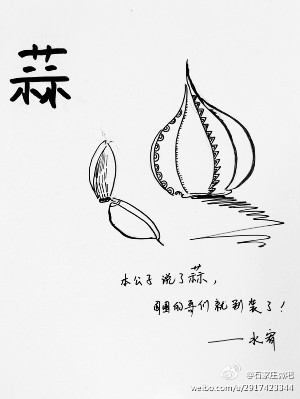 蒜
本公子说了蒜，
圆圆的哥们就别装了！
——水窝
@石家庄微吧
weibo.com/u/2917423344